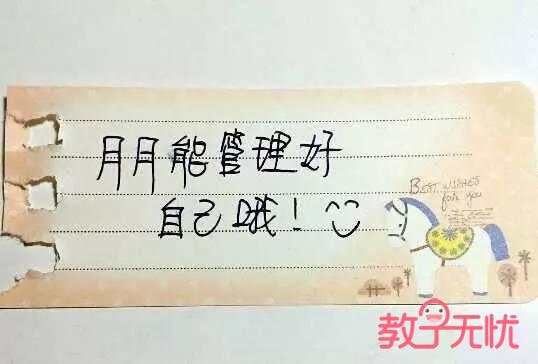 月月能管理好
自己哦！
BEST WISHES
for you
教子无忧